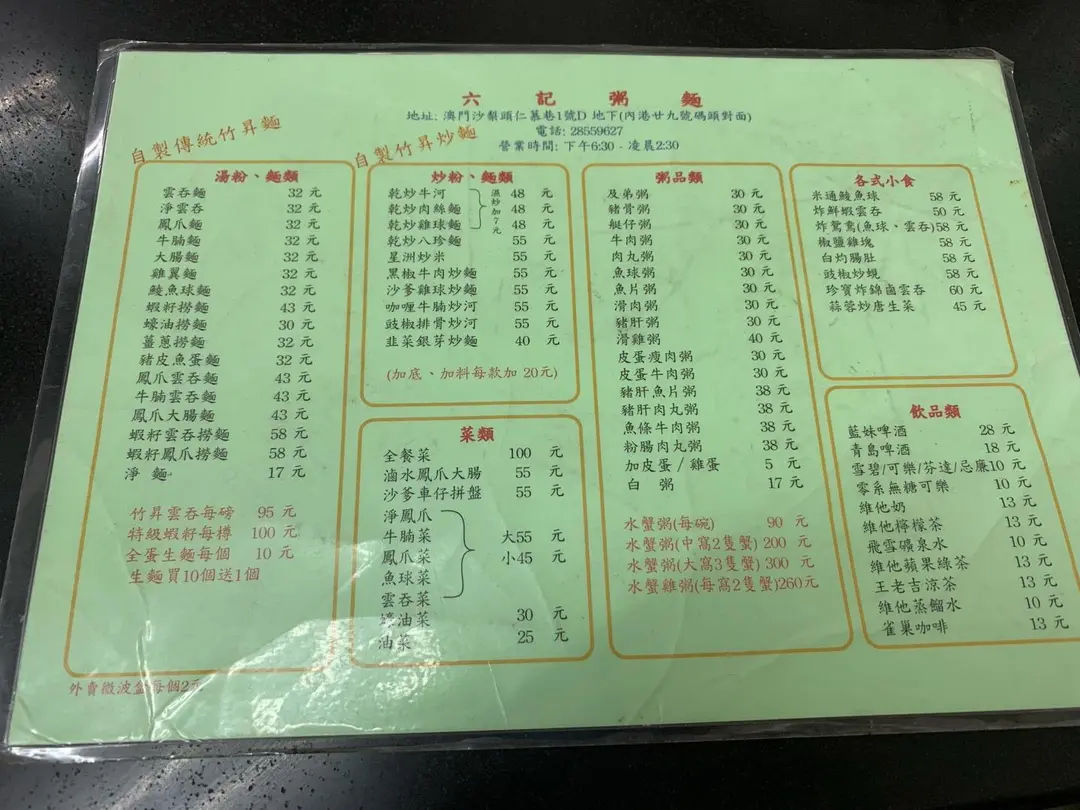 六記粥麵
地址: 澳門沙梨頭仁慕巷1號D 地下(內港廿九號碼頭對面)
電話: 28559627
營業時間: 下午6:30 - 凌晨2:30
自製傳統竹昇麵
湯粉、麵類
雲吞麵 32 元
淨雲吞 32 元
鳳爪麵 32 元
牛腩麵 32 元
大腸麵 32 元
雞翼麵 32 元
鯪魚球麵 32 元
蝦籽撈麵 43 元
蠔油撈麵 30 元
薑蔥撈麵 32 元
豬皮魚蛋麵 32 元
鳳爪雲吞麵 43 元
牛腩雲吞麵 43 元
鳳爪大腸麵 43 元
蝦籽雲吞撈麵 58 元
蝦籽鳳爪撈麵 58 元
淨 麵 17 元
竹昇雲吞每磅 95 元
特級蝦籽每樽 100 元
全蛋生麵每個 10 元
生麵買10個送1個
外賣微波盒每個2元
自製竹昇炒麵
炒粉、麵類
乾炒牛河 48 元
乾炒肉絲麵 48 元
乾炒雞球麵 48 元
濕炒加7元
乾炒八珍麵 55 元
星洲炒米 55 元
黑椒牛肉炒麵 55 元
沙爹雞球炒麵 55 元
咖喱牛腩炒河 55 元
豉椒排骨炒河 55 元
韭菜銀芽炒麵 40 元
(加底、加料每款加 20元)
菜類
全餐菜 100 元
滷水鳳爪大腸 55 元
沙爹車仔拼盤 55 元
淨鳳爪
牛腩菜 大55 元
鳳爪菜 小45 元
魚球菜
雲吞菜
蠔油菜 30 元
油菜 25 元
粥品類
及弟粥 30 元
豬骨粥 30 元
艇仔粥 30 元
牛肉粥 30 元
肉丸粥 30 元
魚球粥 30 元
魚片粥 30 元
滑肉粥 30 元
豬肝粥 30 元
滑雞粥 40 元
皮蛋瘦肉粥 30 元
皮蛋牛肉粥 30 元
豬肝魚片粥 38 元
豬肝肉丸粥 38 元
魚條牛肉粥 38 元
粉腸肉丸粥 38 元
加皮蛋/雞蛋 5 元
白 粥 17 元
水蟹粥(每碗) 90 元
水蟹粥(中窩2隻蟹) 200 元
水蟹粥(大窩3隻蟹) 300 元
水蟹雞粥(每窩2隻蟹)260元
各式小食
米通鯪魚球 58 元
炸鮮蝦雲吞 50 元
炸鴛鴦(魚球、雲吞)58 元
椒鹽雞塊 58 元
白灼腸肚 58 元
豉椒炒蜆 58 元
珍寶炸錦鹵雲吞 60 元
蒜蓉炒唐生菜 45 元
飲品類
藍妹啤酒 28 元
青島啤酒 18 元
雪碧/可樂/芬達/忌廉10 元
零系無糖可樂 10 元
維他奶 13 元
維他檸檬茶 13 元
飛雪礦泉水 10 元
維他蘋果綠茶 13 元
王老吉涼茶 13 元
維他蒸餾水 10 元
雀巢咖啡 13 元